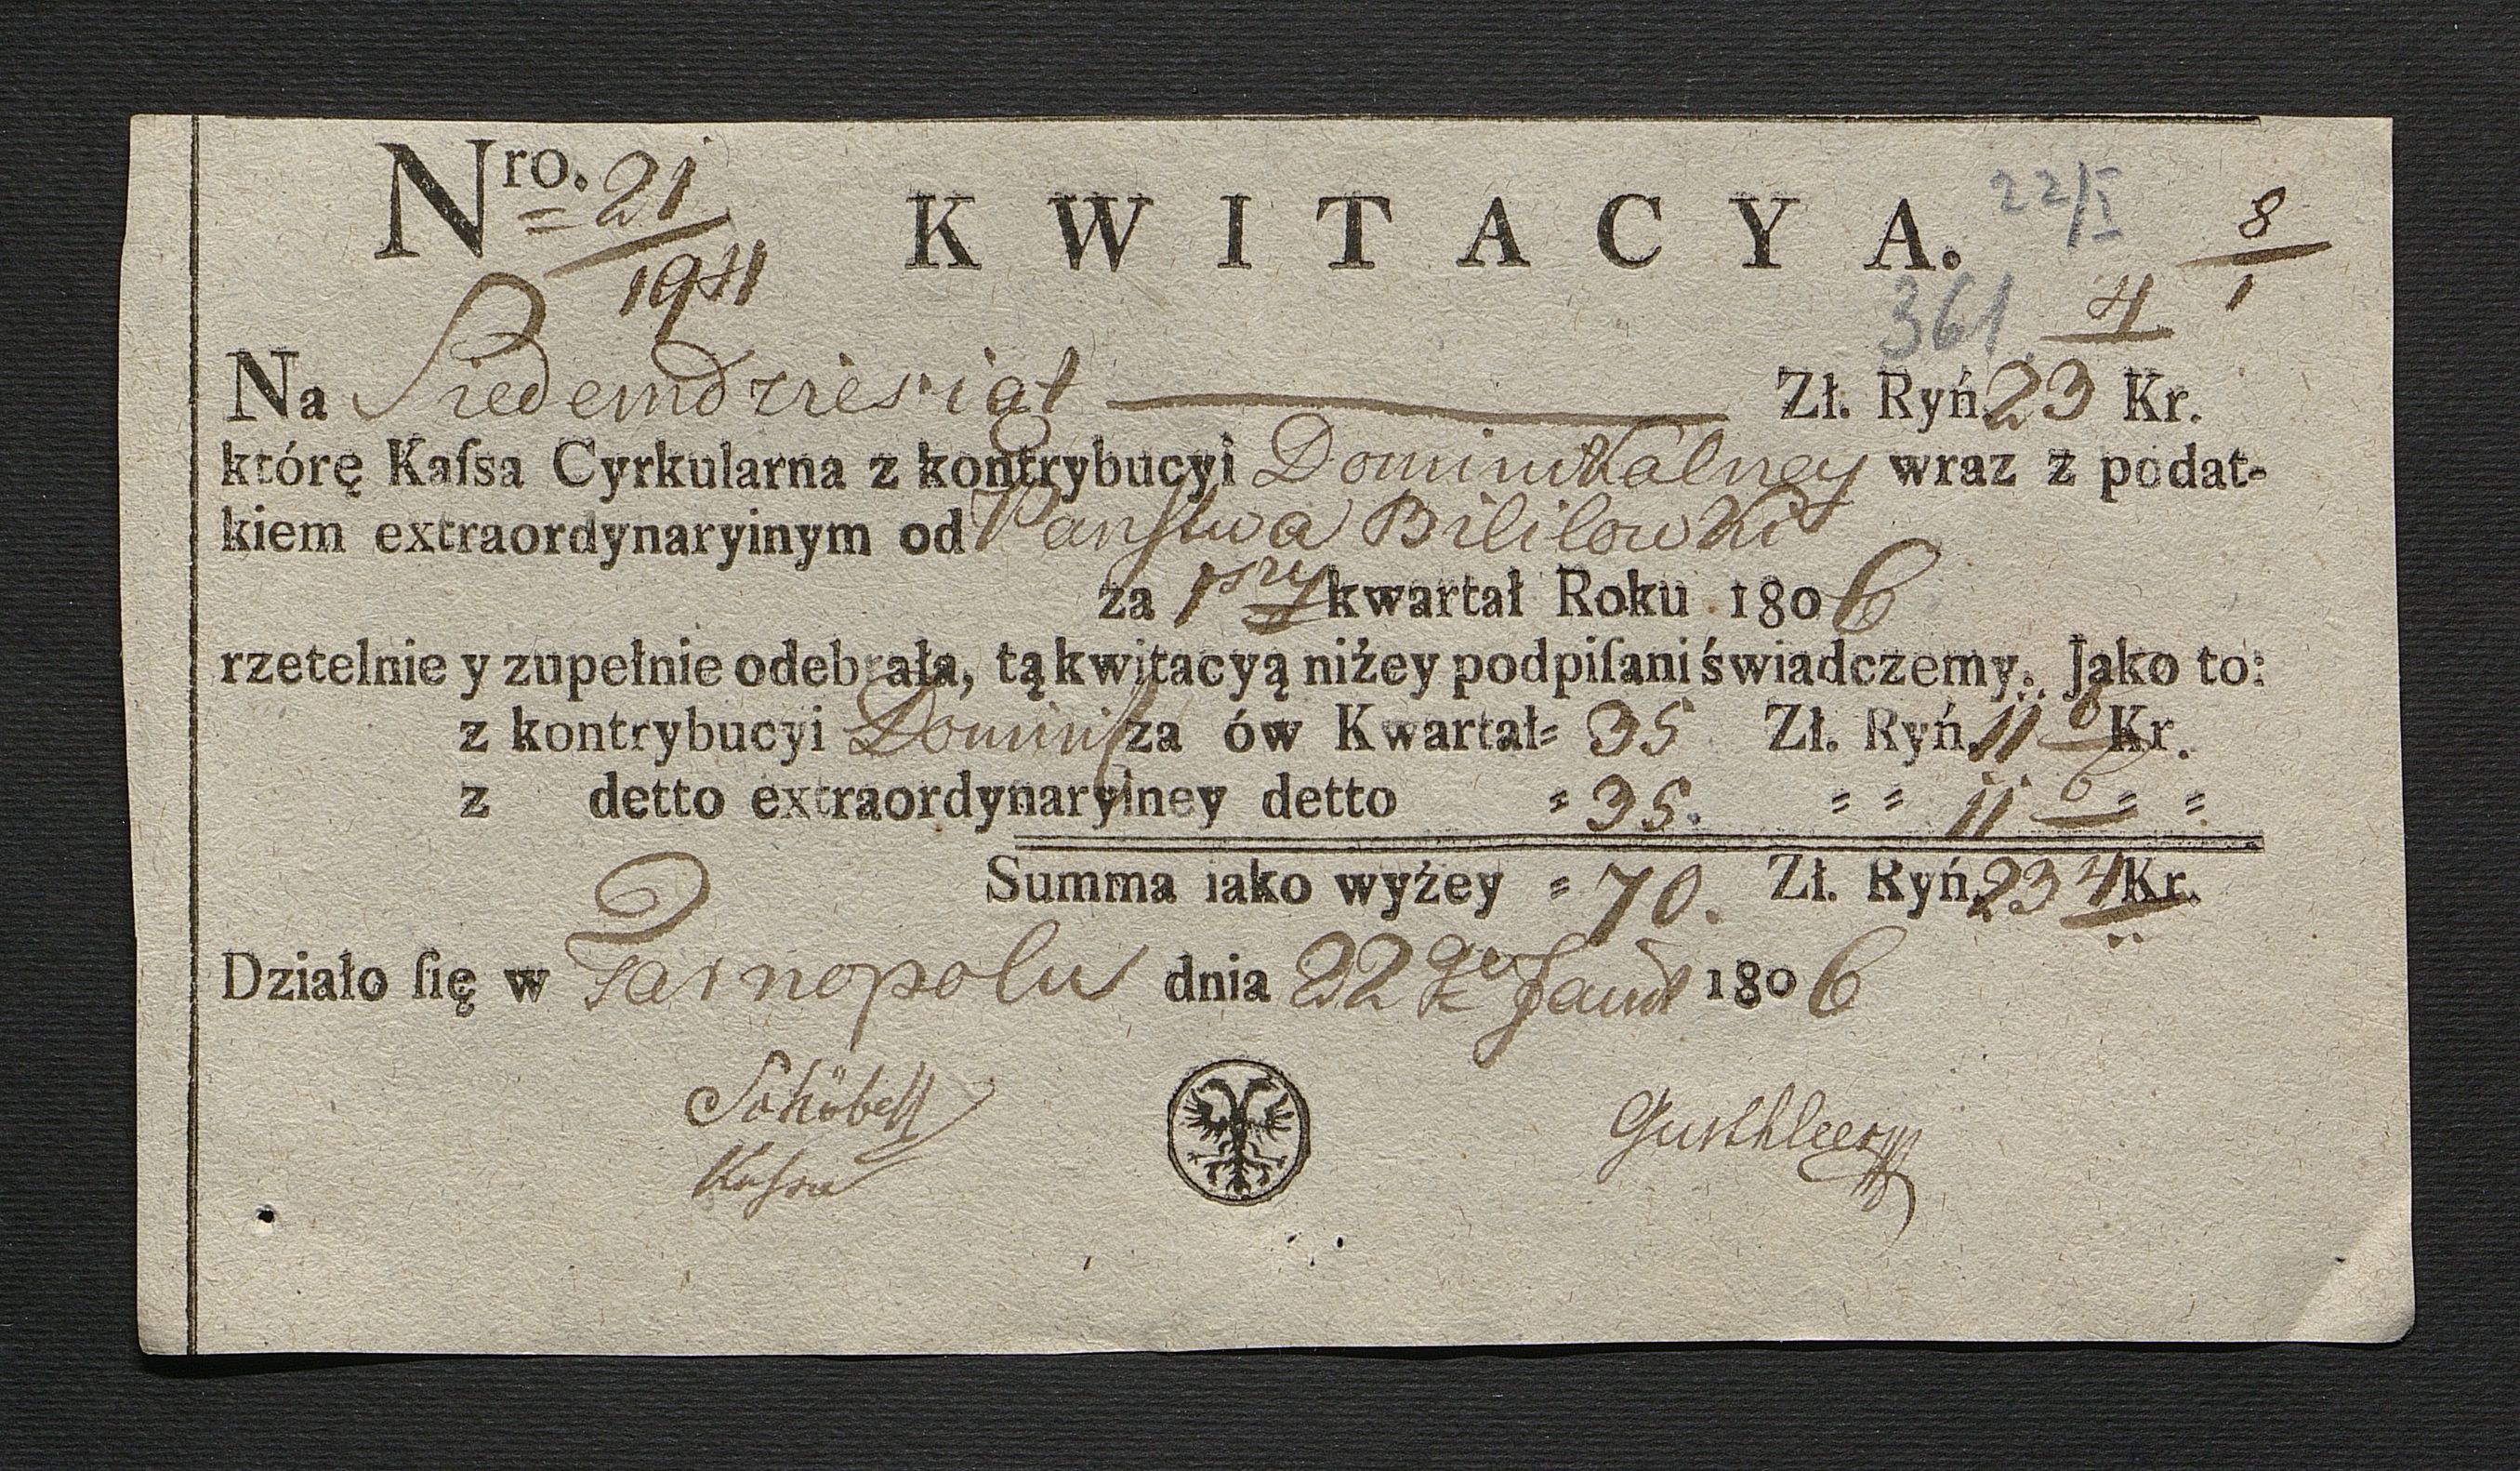 Nro. 21 K W I T A C Y A. 22/I 8/1
1941 361 4
Na Siedemdziesiąt Zł. Ryń. 23 Kr.
którę Kaſsa Cyrkularna z kontrybucyi Dominikalney wraz z podat-
kiem extraordynaryinym od Państwa Bililowki
za 1szy kwartał Roku 1806
rzetelnie y zupełnie odebrała, tą kwitacyą niżey podpiſani świadczemy. Jako to:
z kontrybucyi Dominik za ów Kwartał= 35 Zł. Ryń. 11 6 Kr.
z detto extraordynaryiney detto = 35. = = 11 6 = =
Summa iako wyżey = 70. Zł. Ryń. 23 4 Kr.
Działo ſię w Tarnopolu dnia 22 Janu 1806